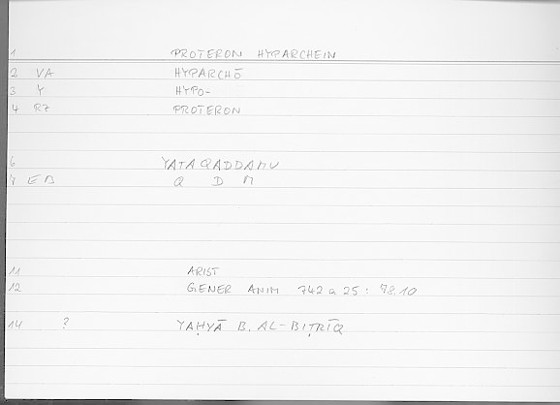 1 PROTERON HYPARCHEIN
2 VA HYPARCHŌ
3 Y HYPO-
4 RZ PROTERON
6 YATAQADDAMU
8 EB Q D M
11 ARIST
12 GENER ANIM 742 a 25 : 78.10
14 ? YAḤYĀ B. AL-BIṬRĪQ